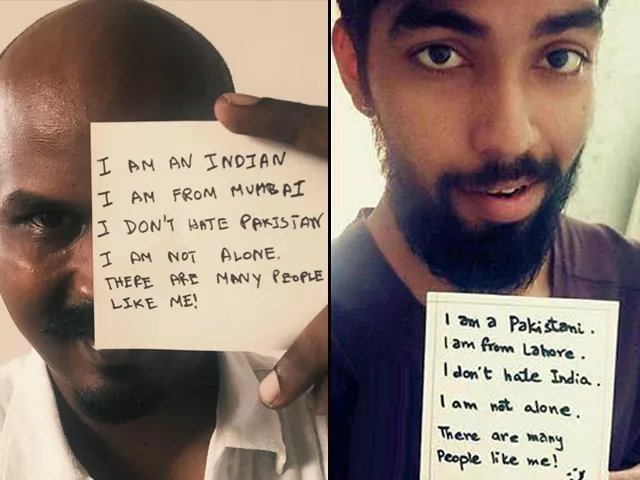 I AM AN INDIAN
I AM FROM MUMBAI
I DON'T HATE PAKISTAN
I AM NOT ALONE.
THERE ARE MANY PEOPLE
LIKE ME!
I am a Pakistani.
I am from Lahore.
I don't hate India.
I am not alone.
There are many
People like me!